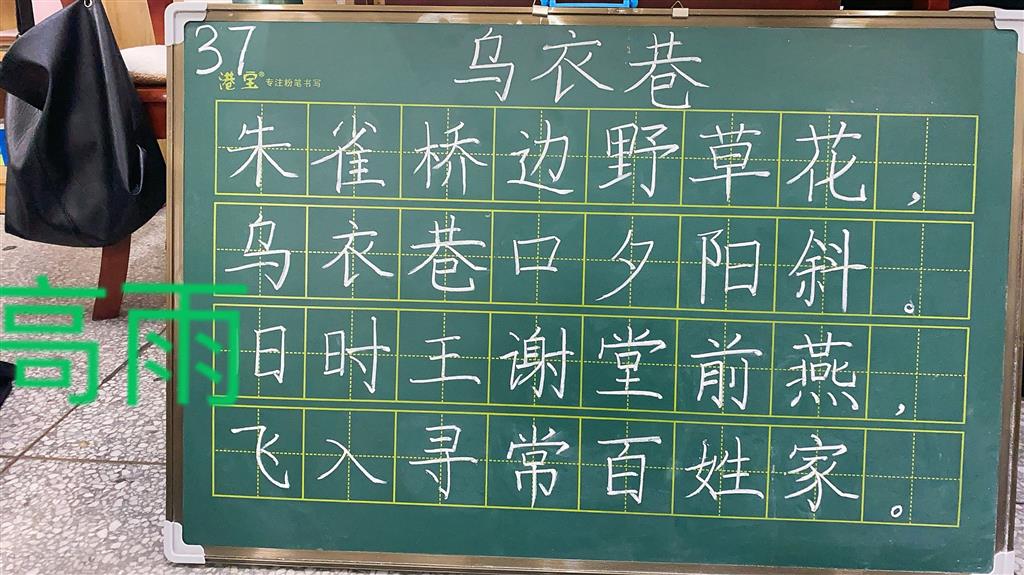 37
乌衣巷
港宝® 专注粉笔书写
朱雀桥边野草花，
乌衣巷口夕阳斜。
高雨
旧时王谢堂前燕，
飞入寻常百姓家。